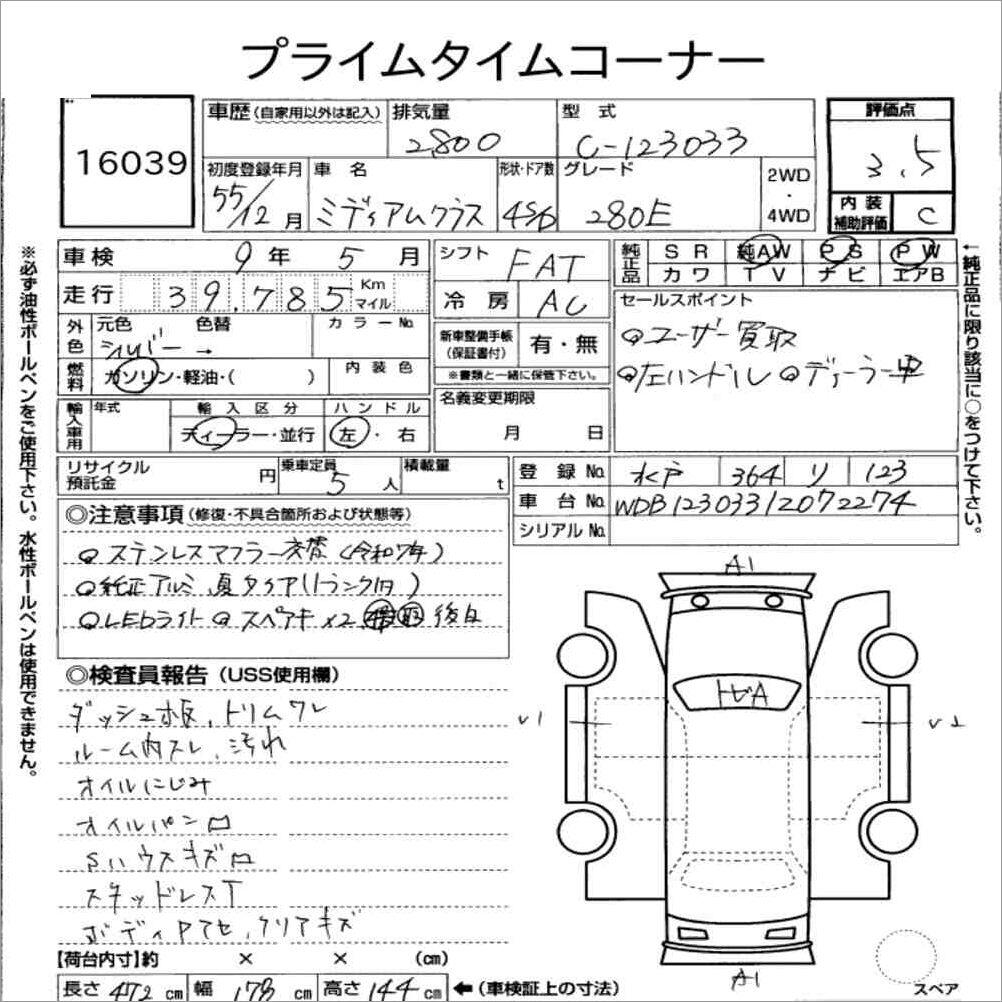 プライムタイムコーナー
16039
車歴 (自家用以外は記入)
排気量
2,800
型 式
C-123033
評価点
3.5
初度登録年月
55/12 月
車 名
ミディアムクラス
形状・ドア数
4SD
グレード
280E
2WD
・
4WD
内 装
補助評価
C
※必ず油性ボールペンをご使用下さい。水性ボールペンは使用できません。
車検 9 年 5 月
シフト FAT
純正品
S R 純AW P S P W
カワ T V ナビ エアB
←純正品に限り該当に○をつけて下さい。
走行 39,785 Km
マイル
冷 房 AC
セールスポイント
ユーザー買取
左ハンドル ディーラー車
外色
元色 色替 カラーNo.
シルバー →
新車整備手帳
(保証書付)
有・無
※書類と一緒に保管下さい。
燃料
ガソリン・軽油・( )
内 装 色
輸入車用
年式
輸 入 区 分
ハ ン ド ル
ディーラー・並行
左 ・ 右
名義変更期限
月 日
リサイクル
預託金
円
乗車定員
5 人
積載量
t
登 録 No. 水戸 364 リ 123
車 台 No. WDB12303312072274
シリアル No.
◎注意事項 (修復・不具合箇所および状態等)
ステンレスマフラー交替(令和7年)
純正アルミ 夏タイア(トランク内)
LEDライト スペアキー×2 取 後日
◎検査員報告 (USS使用欄)
ダッシュ板、トリムワレ
ルーム内スレ、汚れ
オイルにじみ
オイルパンロ
Sハウスキズロ
スタッドレスT
ボディアアセ、クリアキズ
A1
トビA
U1
U2
A1
スペア
【荷台内寸】約 × × (cm)
長さ 472 cm 幅 178 cm 高さ 144 cm ←(車検証上の寸法)